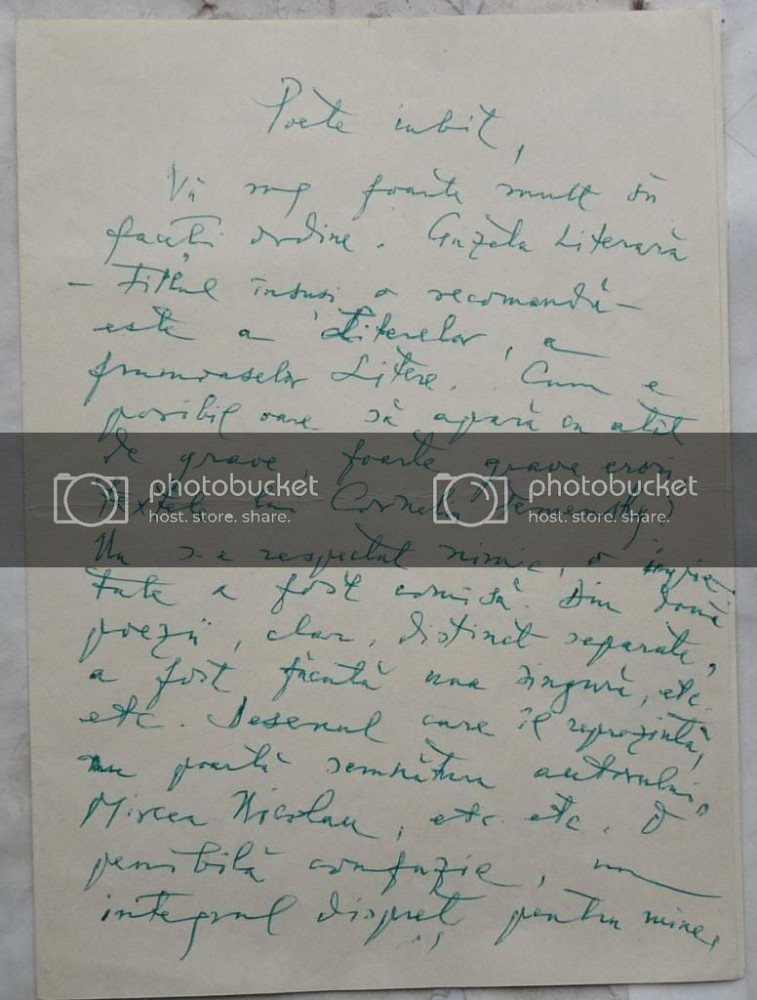 Poete iubit,
Vă rog foarte mult să
faceți ordine. Gazeta Literară
– Titlul însuși o recomandă –
este a Literelor, a
frumoaselor Litere. Cum e
posibil oare să apară cu atât
de grave, foarte grave erori
textele lui Corneliu
photobucket photobucket
host. store. share. host. store. share.
Nu s-a respectat nimic, o impie-
tate a fost comisă. Din două
poezii, clar, distinct separate,
a fost făcută una singură, etc.
etc. Desenul care îl reprezintă,
nu poartă semnătura autorului,
Mircea Nicolau, etc. etc. O
penibilă confuzie, un
integral dispreț pentru mine,